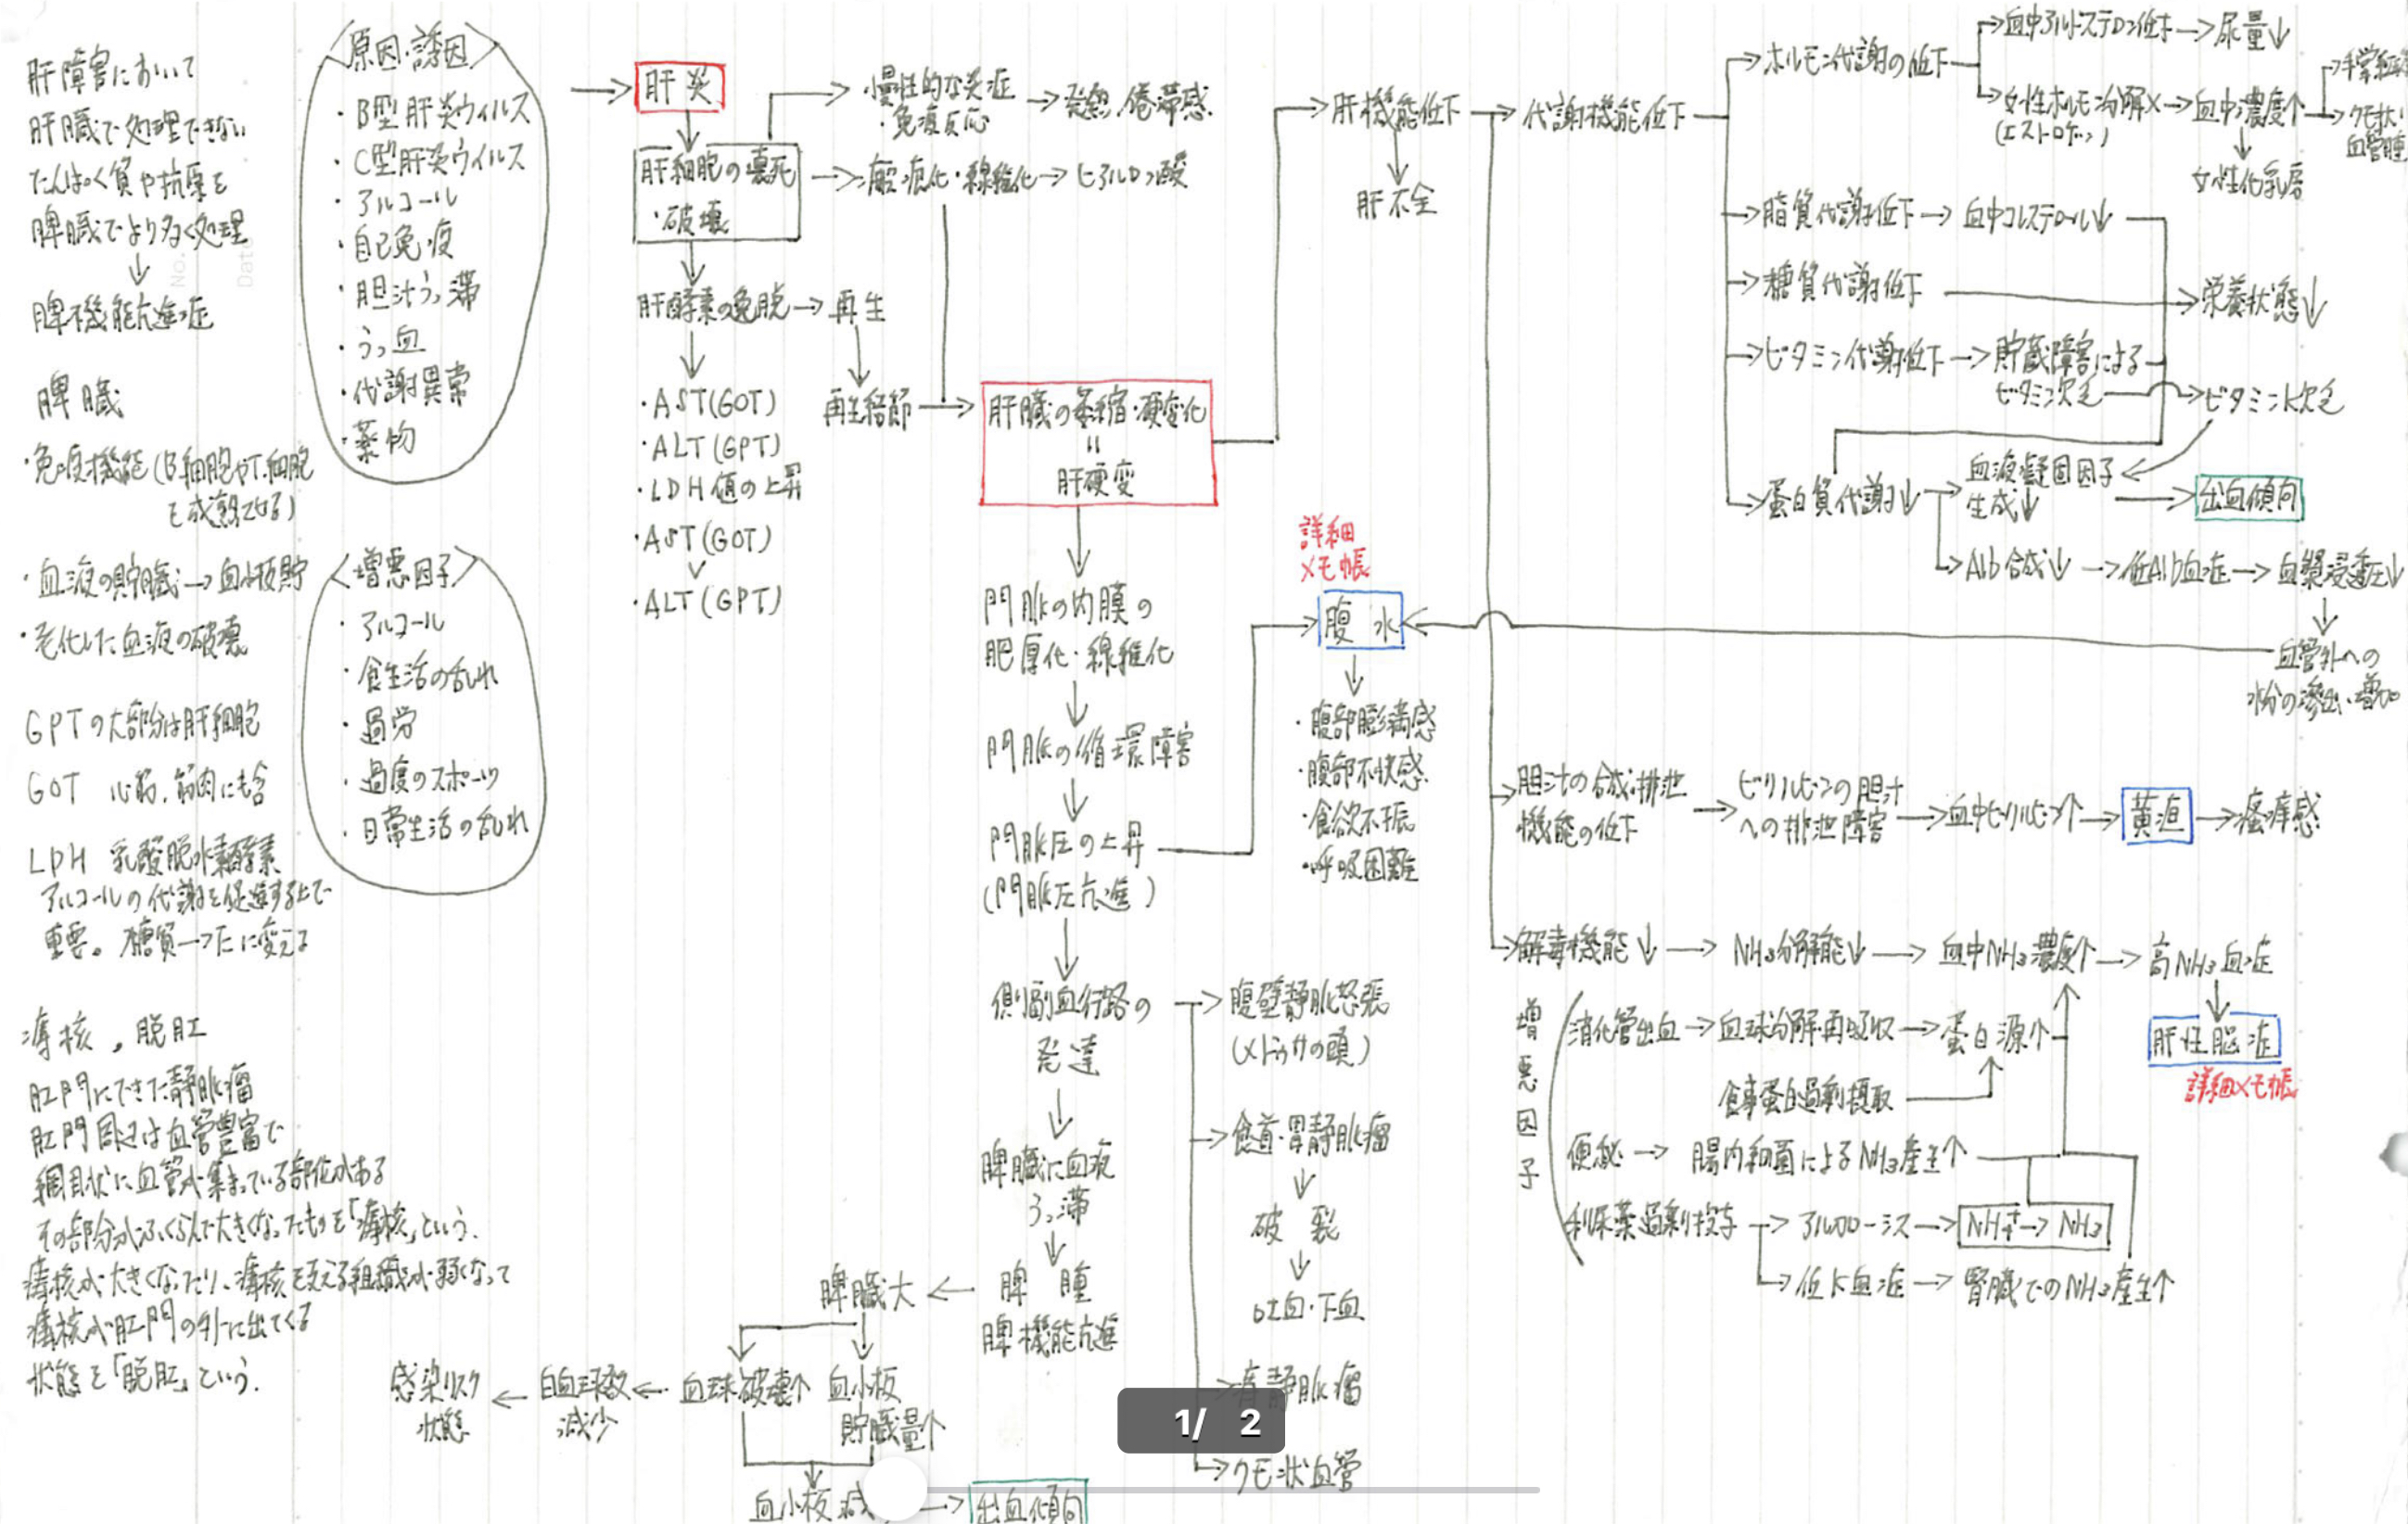 肝障害において
肝臓で処理できない
たんぱく質や抗原を
脾臓でより多く処理
↓
脾機能亢進症
脾臓
・免疫機能(B細胞やT細胞
を成熟させる)
・血液の貯臓→血小板貯
・老化した血液の破壊
GPTの大部分は肝細胞
GOT 心筋、筋肉にも含
LDH 乳酸脱水素酵素
アルコールの代謝を促進する上で
重要。糖質→Eに変える
痔核。脱肛
肛門にできた静脈瘤
肛門周辺は血管豊富で
網目状に血管が集まっている部位がある
その部分がふくらんで大きくなったものを「痔核」という。
痔核が大きくなったり、痔核を支える組織が弱くなって
痔核が肛門の外に出てくる
状態を「脱肛」という。
<原因・誘因>
・B型肝炎ウィルス
・C型肝炎ウィルス
・アルコール
・自己免疫
・胆汁うっ滞
・うっ血
・代謝異常
・薬物
<増悪因子>
・アルコール
・食生活の乱れ
・過労
・過度のスポーツ
・日常生活の乱れ
→肝炎
↓
肝細胞の壊死
・破壊
→慢性的な炎症
・免疫反応
→発熱、倦怠感
→瘢痕化・線維化→ヒアルロン酸
↓
肝酵素の逸脱→再生
↓
再生結節→
・AST(GOT)
・ALT(GPT)
・LDH値の上昇
・AST(GOT)
∨
・ALT(GPT)
肝臓の萎縮・硬変化
〃
肝硬変
↓
門脈の内膜の
肥厚化・線維化
↓
門脈の循環障害
↓
門脈圧の上昇
(門脈圧亢進)
↓
側副血行路の
発達
↓
脾臓に血液
うっ滞
↓
脾腫
脾機能亢進
脾臓大←
血球破壊↑
血小板
貯臓量↑
白血球数
減少
感染リスク
状態
血小板減
→出血傾向
→腹壁静脈怒張
(メドゥサの頭)
→食道・胃静脈瘤
↓
破裂
↓
吐血・下血
静脈瘤
→クモ状血管
詳細
メモ帳
腹水
↓
・腹部膨満感
・腹部不快感
・食欲不振
・呼吸困難
→肝機能低下→代謝機能低下
↓
肝不全
→ホルモン代謝の低下
→血中アルドステロン低下→尿量↓
→女性ホルモン分解×→血中濃度↑
(エストロゲン)
↓
女性化乳房
→手掌紅斑
→クモ状
血管腫
→脂質代謝低下→血中コレステロール↓
→糖質代謝低下
→栄養状態↓
→ビタミン代謝低下→貯蔵障害による
ビタミン欠乏→ビタミンK欠乏
→蛋白質代謝↓
→血液凝固因子
生成↓
→出血傾向
→Alb合成↓→低Alb血症→血漿浸透圧↓
↓
血管外への
水分の滲出増加
→胆汁の合成・排泄
機能の低下
→ビリルビンの胆汁
への排泄障害
→血中ビリルビン↑→黄疸→瘙痒感
→解毒機能↓→NH₃分解能↓→血中NH₃濃度↑→高NH₃血症
↓
肝性脳症
詳細メモ帳
増悪因子
消化管出血→血球分解・再吸収→蛋白源↑
食事蛋白過剰摂取
便秘→腸内細菌によるNH₃産生↑
利尿薬過剰投与→アルカローシス→NH₄⁺→NH₃
→低K血症→腎臓でのNH₃産生↑
No.
Dat
1/ 2